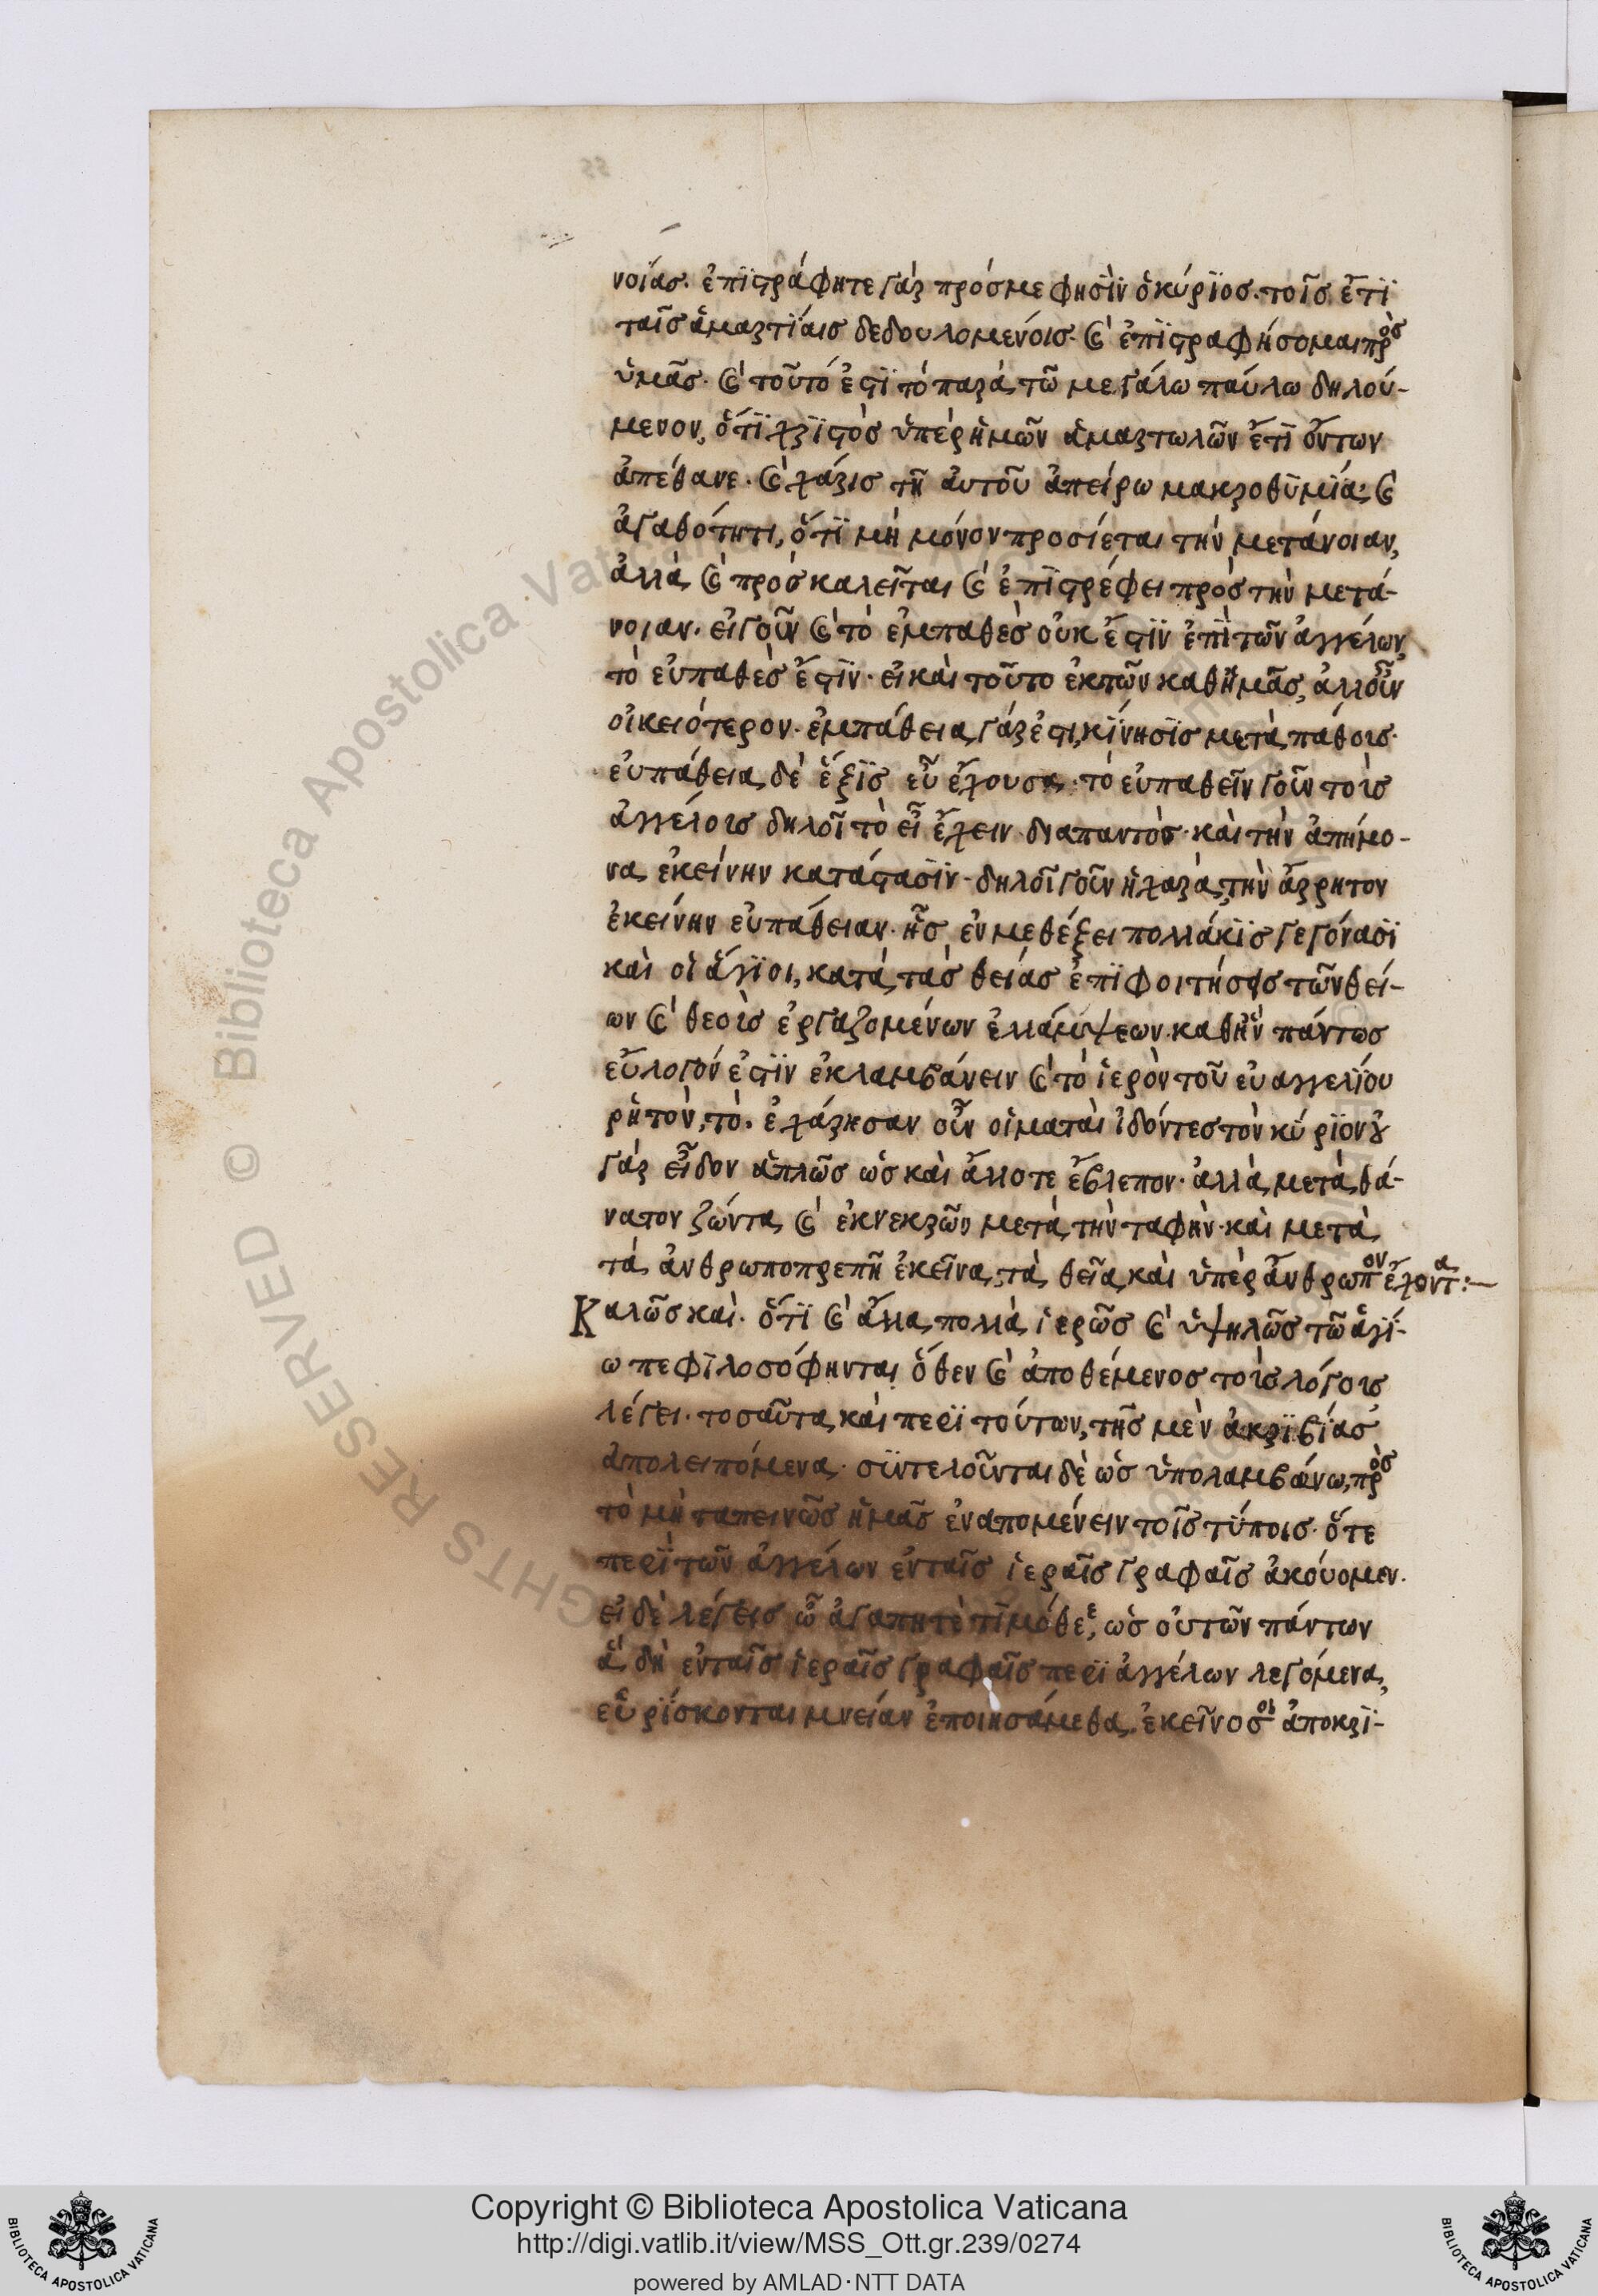 νοίας. ἐπϊστράφητε γάρ πρόσμε φησῒν ὁ κύρϊος. τοῖς ἔτϊ
ταῖς ἁμαρτΐαις δεδουλομένοις. καὶ ἐπϊστραφήσομαι πρὸς
ὑμᾶς. καὶ τοῦτό ἐστϊ τό παρά τῶ μεγάλω παύλω δηλού-
μενον, ὅτϊ χρϊστὸς ὑπέρ ἡμῶν ἁμαρτωλῶν ἔτϊ ὄντων
ἀπέθανε. καὶ χάρις τῆ ἀυτοῦ ἀπείρω μακροθϋμία; καὶ
ἀγαθότητι, ὅτϊ μή μόνον προσίεται τήν μετάνοιαν,
ἀλλὰ καὶ πρόσκαλεῖται καὶ ἐπϊστρέφει πρὸς τήν μετά-
νοιαν. εἰ γοῦν καὶ τό ἐμπαθὲς οὐκ ἔστϊν ἐπὶ τῶν ἀγγέλων,
τὸ εὐπαθὲς ἔστϊν. εἰ καὶ τοῦτο ἐκ τῶν καθἡμᾶς, ἀλλοὖν
οἰκειότερον. ἐμπάθεια γάρ ἐστι, κίνησϊς μετὰ πάθοις.
εὐπάθεια δὲ ἕξϊς εὖ ἔχουσα. τό εὐπαθεῖν γοῦν τοῖς
ἀγγέλοις δηλοῖ τὸ εἶ ἔχειν διαπαντός. καὶ τὴν ἀπήμο-
να ἐκείνην κατάστασϊν. δηλοῖ γοῦν ἡ χαρά, τὴν ἄρρητον
ἐκείνην εὐπάθειαν. ἧς ἐν μεθέξει πολλάκϊς γεγόνασϊ
καὶ οἱ ἅγϊοι, κατὰ τάς θείας ἐπϊφοιτήσεις τῶν θεί-
ων καὶ θεοῖς ἐργαζομένων ἐλλάμψεων. καθἣν πάντως
εὔλογόν ἐστϊν ἐκλαμβάνειν καὶ τό ἱερὸν τοῦ εὐαγγελΐου
ρητὸν, τὸ. ἐχάρησαν οὖν οἱ ματαὶ ἰδόντες τὸν κύρϊον οὐ
γάρ εἶδον ἁπλῶς ὡς καὶ ἄλλοτε ἔβλεπον. ἀλλὰ μετὰ θά-
νατον ζώντα καὶ ἐκνεκρῶν μετὰ τὴν ταφὴν. καὶ μετὰ
τὰ ἀνθρωποπρεπῆ ἐκεῖνα, τὰ θεῖα καὶ ὑπὲρ ἄνθρωπον ἔχοντα:—
Καλῶς καὶ. ὅτϊ καὶ ἄλλα πολλὰ ἱερῶς καὶ ὑψηλῶς τῶ ἁγί-
ω πεφϊλοσόφηνται ὅθεν καὶ ἀποθέμενος τοῖς λόγοις
λέγει. τοσαῦτα καὶ περϊ τούτων, τῆς μὲν ἀκρϊβίας
ἀπολειπόμενα. σϋντελοῦνται δὲ ὡς ὑπολαμβάνω, πρὸς
τὸ μὴ ταπεινῶς ἡμᾶς ἐναπομένειν τοῖς τύποις. ὅτε
περϊ τῶν ἀγγέλων ἐνταῖς ἱεραῖς γραφαῖς ἀκούομεν.
εἰ δὲ λέγεις ὦ ἀγαπητὲ τϊμόθεε, ὡς οὐτῶν πάντων
ἃ δὴ ἐνταῖς ἱεραῖς γραφαῖς περϊ ἀγγέλων λεγόμενα,
εὑρΐσκονται μνείαν ἐποιησάμεθα. ἐκεῖνος οὖν ἀποκρϊ-
Copyright © Biblioteca Apostolica Vaticana
http://digi.vatlib.it/view/MSS_Ott.gr.239/0274
powered by AMLAD·NTT DATA
BIBLIOTECA APOSTOLICA VATICANA
BIBLIOTECA APOSTOLICA VATICANA